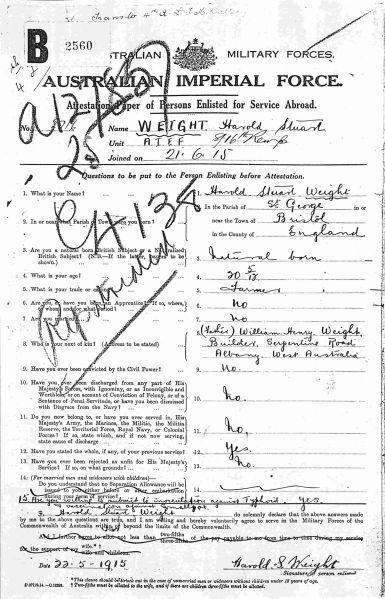 B 2560
AUSTRALIAN MILITARY FORCES.
AUSTRALIAN IMPERIAL FORCE.
Attestation Paper of Persons Enlisted for Service Abroad.
No. Name WEIGHT Harold Stuart
Unit
Joined on 21.6.15
Questions to be put to the Person Enlisting before Attestation.
1. What is your Name? 1. Harold Stuart Weight
In the Parish of St George in or
2. In or near what Parish or Town were you born? near the Town of Bristol
in the County of England
3. Are you a natural born British Subject or a Naturalized British Subject? (N.B.—If the latter, papers to be shown.) 3. Natural born
4. What is your age? 4.
5. What is your trade or 5. Farmer
6. Are you, or have you been an Apprentice? If so, where, 6. No
7. Are you 7. No
8. Who is your next of kin? (Address to be stated) 8. (Father) William Henry Weight,
Builder, Serpentine Road
Albany. West Australia
9. Have you ever been convicted by the Civil Power? 9. No.
10. Have you ever been discharged from any part of His Majesty's Forces, with Ignominy, or as Incorrigible and Worthless, or on account of Conviction of Felony, or of a Sentence of Penal Servitude, or have you been dismissed with Disgrace from the Navy? 10. No.
11. Do you now belong to, or have you ever served in, His Majesty's Army, the Marines, the Militia, the Militia Reserve, the Territorial Force, Royal Navy, or Colonial Forces? If so, state which, and if not now serving, state cause of discharge 11. No,
12. Have you stated the whole, if any, of your previous service? 12. Yes.
13. Have you ever been rejected as unfit for His Majesty's Service? If so, on what grounds? 13. No.
14. (For married men and widowers with children)—
Do you understand that no Separation Allowance will be issued to you either before or after embarkation during your term of service? 14.
15. Are you willing to submit to inoculation against Typhoid. Yes.
I, Harold Stuart Weight do solemnly declare that the above answers made
by me to the above questions are true, and I am willing and hereby voluntarily agree to serve in the Military Forces of the
Commonwealth of Australia within or beyond the limits of the Commonwealth.
And I further agree to allot not less than two-fifths three-fifths of the pay payable to me from time to time during my service
for the support of my wife.
wife and children.
Date 22-5-1915 Harold S. Weight
Signature of person enlisted.
*This clause should be struck out in the case of unmarried men or widowers without children under 18 years of age.
†Two-fifths must be allotted to the wife, and if there are children three-fifths must be allotted.